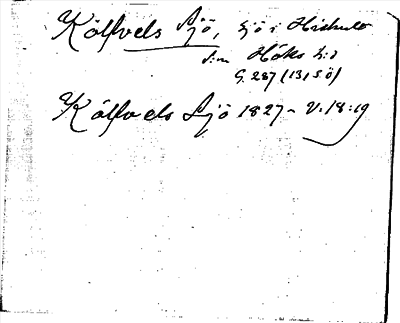 Kölfvels Sjö, sjö i Hishult
s:n Höks h:d
G. 287 (13, 5 ö)
Kölfvels Sjö 1827 V: 18:19